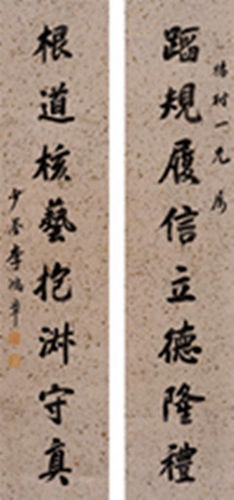 楊村一兄屬
蹈規履信立德隆禮
根道核藝抱淑守真
少荃李鴻章